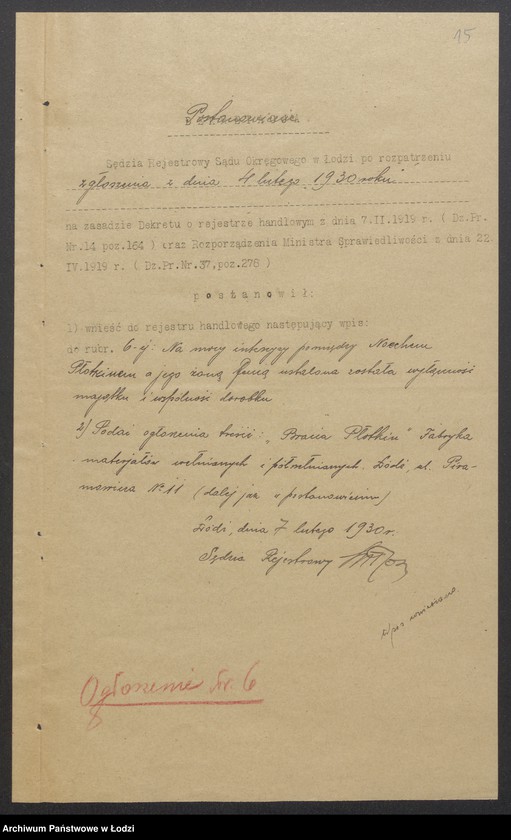 15
Postanowienie
Sędzia Rejestrowy Sądu Okręgowego w Łodzi po rozpatrzeniu
zgłoszenia z dnia 4 lutego 1930 roku
na zasadzie Dekretu o rejestrze handlowym z dnia 7.II.1919 r. ( Dz.Pr.
Nr.14 poz.164 ) oraz Rozporządzenia Ministra Sprawiedliwości z dnia 22.
IV.1919 r. ( Dz.Pr.Nr.37,poz.278 )
postanowił:
1) wnieść do rejestru handlowego następujący wpis:
do rubr. 6-ej: Na mocy intercyzy pomiędzy Nochem
Płotkinem a jego żoną ustalona została wyłączność
majątku i wspólność dorobku
2) Podać ogłoszenia treść: „Bracia Płotkin" Fabryka
materjałów wełnianych i półwełnianych. Łódź, ul. Pira-
mowicza № 11 (dalej jak w postanowieniu)
Łódź, dnia 7 lutego 1930 r.
Sędzia Rejestrowy
Ogłoszenie Nr. 6
Archiwum Państwowe w Łodzi